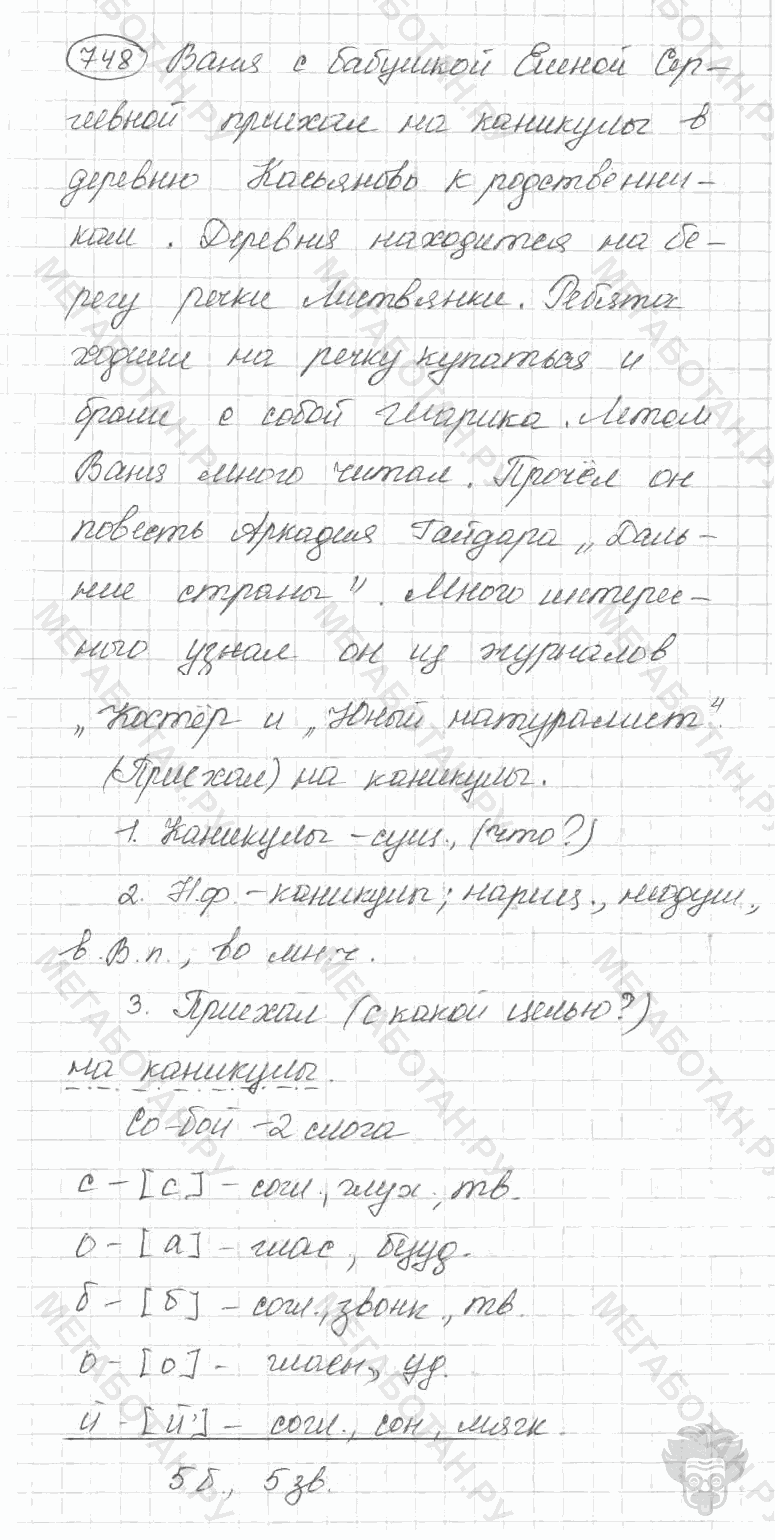 748 Ваня с бабушкой Еленой Сер-
геевной приехал на каникулы в
деревню Касьяново к родственни-
кам. Деревня находится на бе-
регу речки Листвянки. Ребята
ходили на речку купаться и
брали с собой Шарика. Летом
Ваня много читал. Прочёл он
повесть Аркадия Гайдара „Даль-
ние страны". Много интерес-
ного узнал он из журналов
„Костёр и „Юный натуралист".
(Приехал) на каникулы.
1. Каникулы - сущ., (что?)
2. Н.ф. - каникулы; нариц., неодуш.,
в В.п., во мн.ч.
3. Приехал (с какой целью?)
на каникулы.
Со-бой - 2 слога
с - [с] - согл., глух., тв.
о - [а] - глас, безуд.
б - [б] - согл., звонк., тв.
о - [о] - гласн., уд.
й - [й'] - согл., сон, мягк.
5 б., 5 зв.
МЕГАБОТАН.РУ